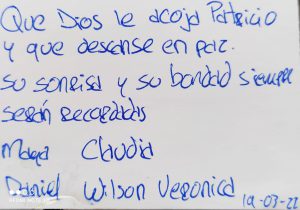 Que Dios le acoja Patricio
y que descanse en paz.
su sonrisa y su bondad siempre
serán recordadas
Maya Claudia
Daniel Wilson Veronica 19-03-22